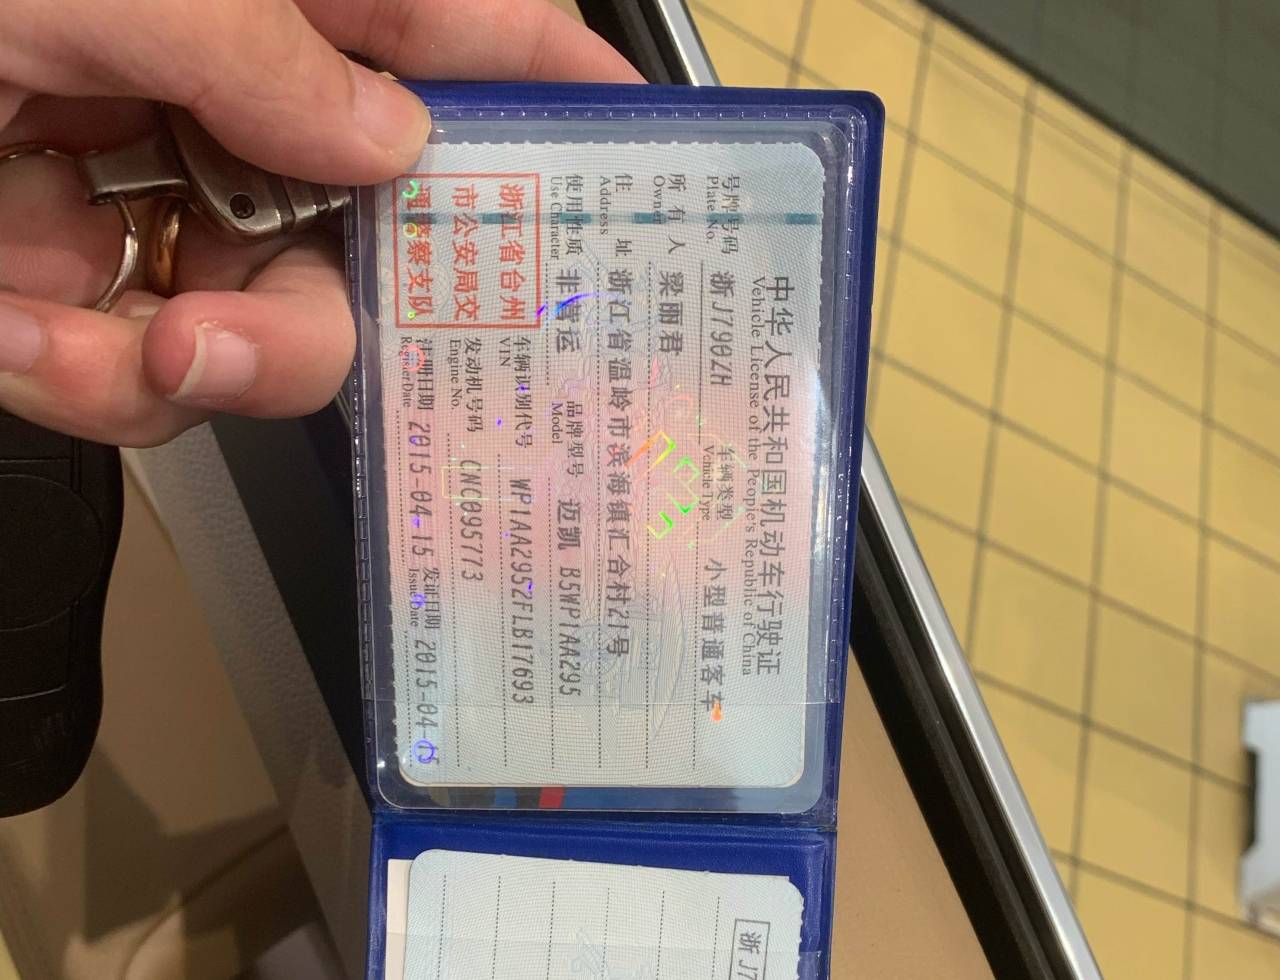 中华人民共和国机动车行驶证
Vehicle License of the People's Republic of China
号牌号码 浙J790ZH 车辆类型 小型普通客车
Plate No. Vehicle Type
所有人 梁丽君
Owner
住址 浙江省温岭市滨海镇汇合村21号
Address
使用性质 非营运 品牌型号 迈凯 B5WP1AA295
Use Character Model
浙江省台州
市公安局交
通警察支队
车辆识别代号 WP1AA2952FLB17693
VIN
发动机号码 CNC095773
Engine No.
注册日期 2015-04-15 发证日期 2015-04-15
Register Date Issue Date
浙J7